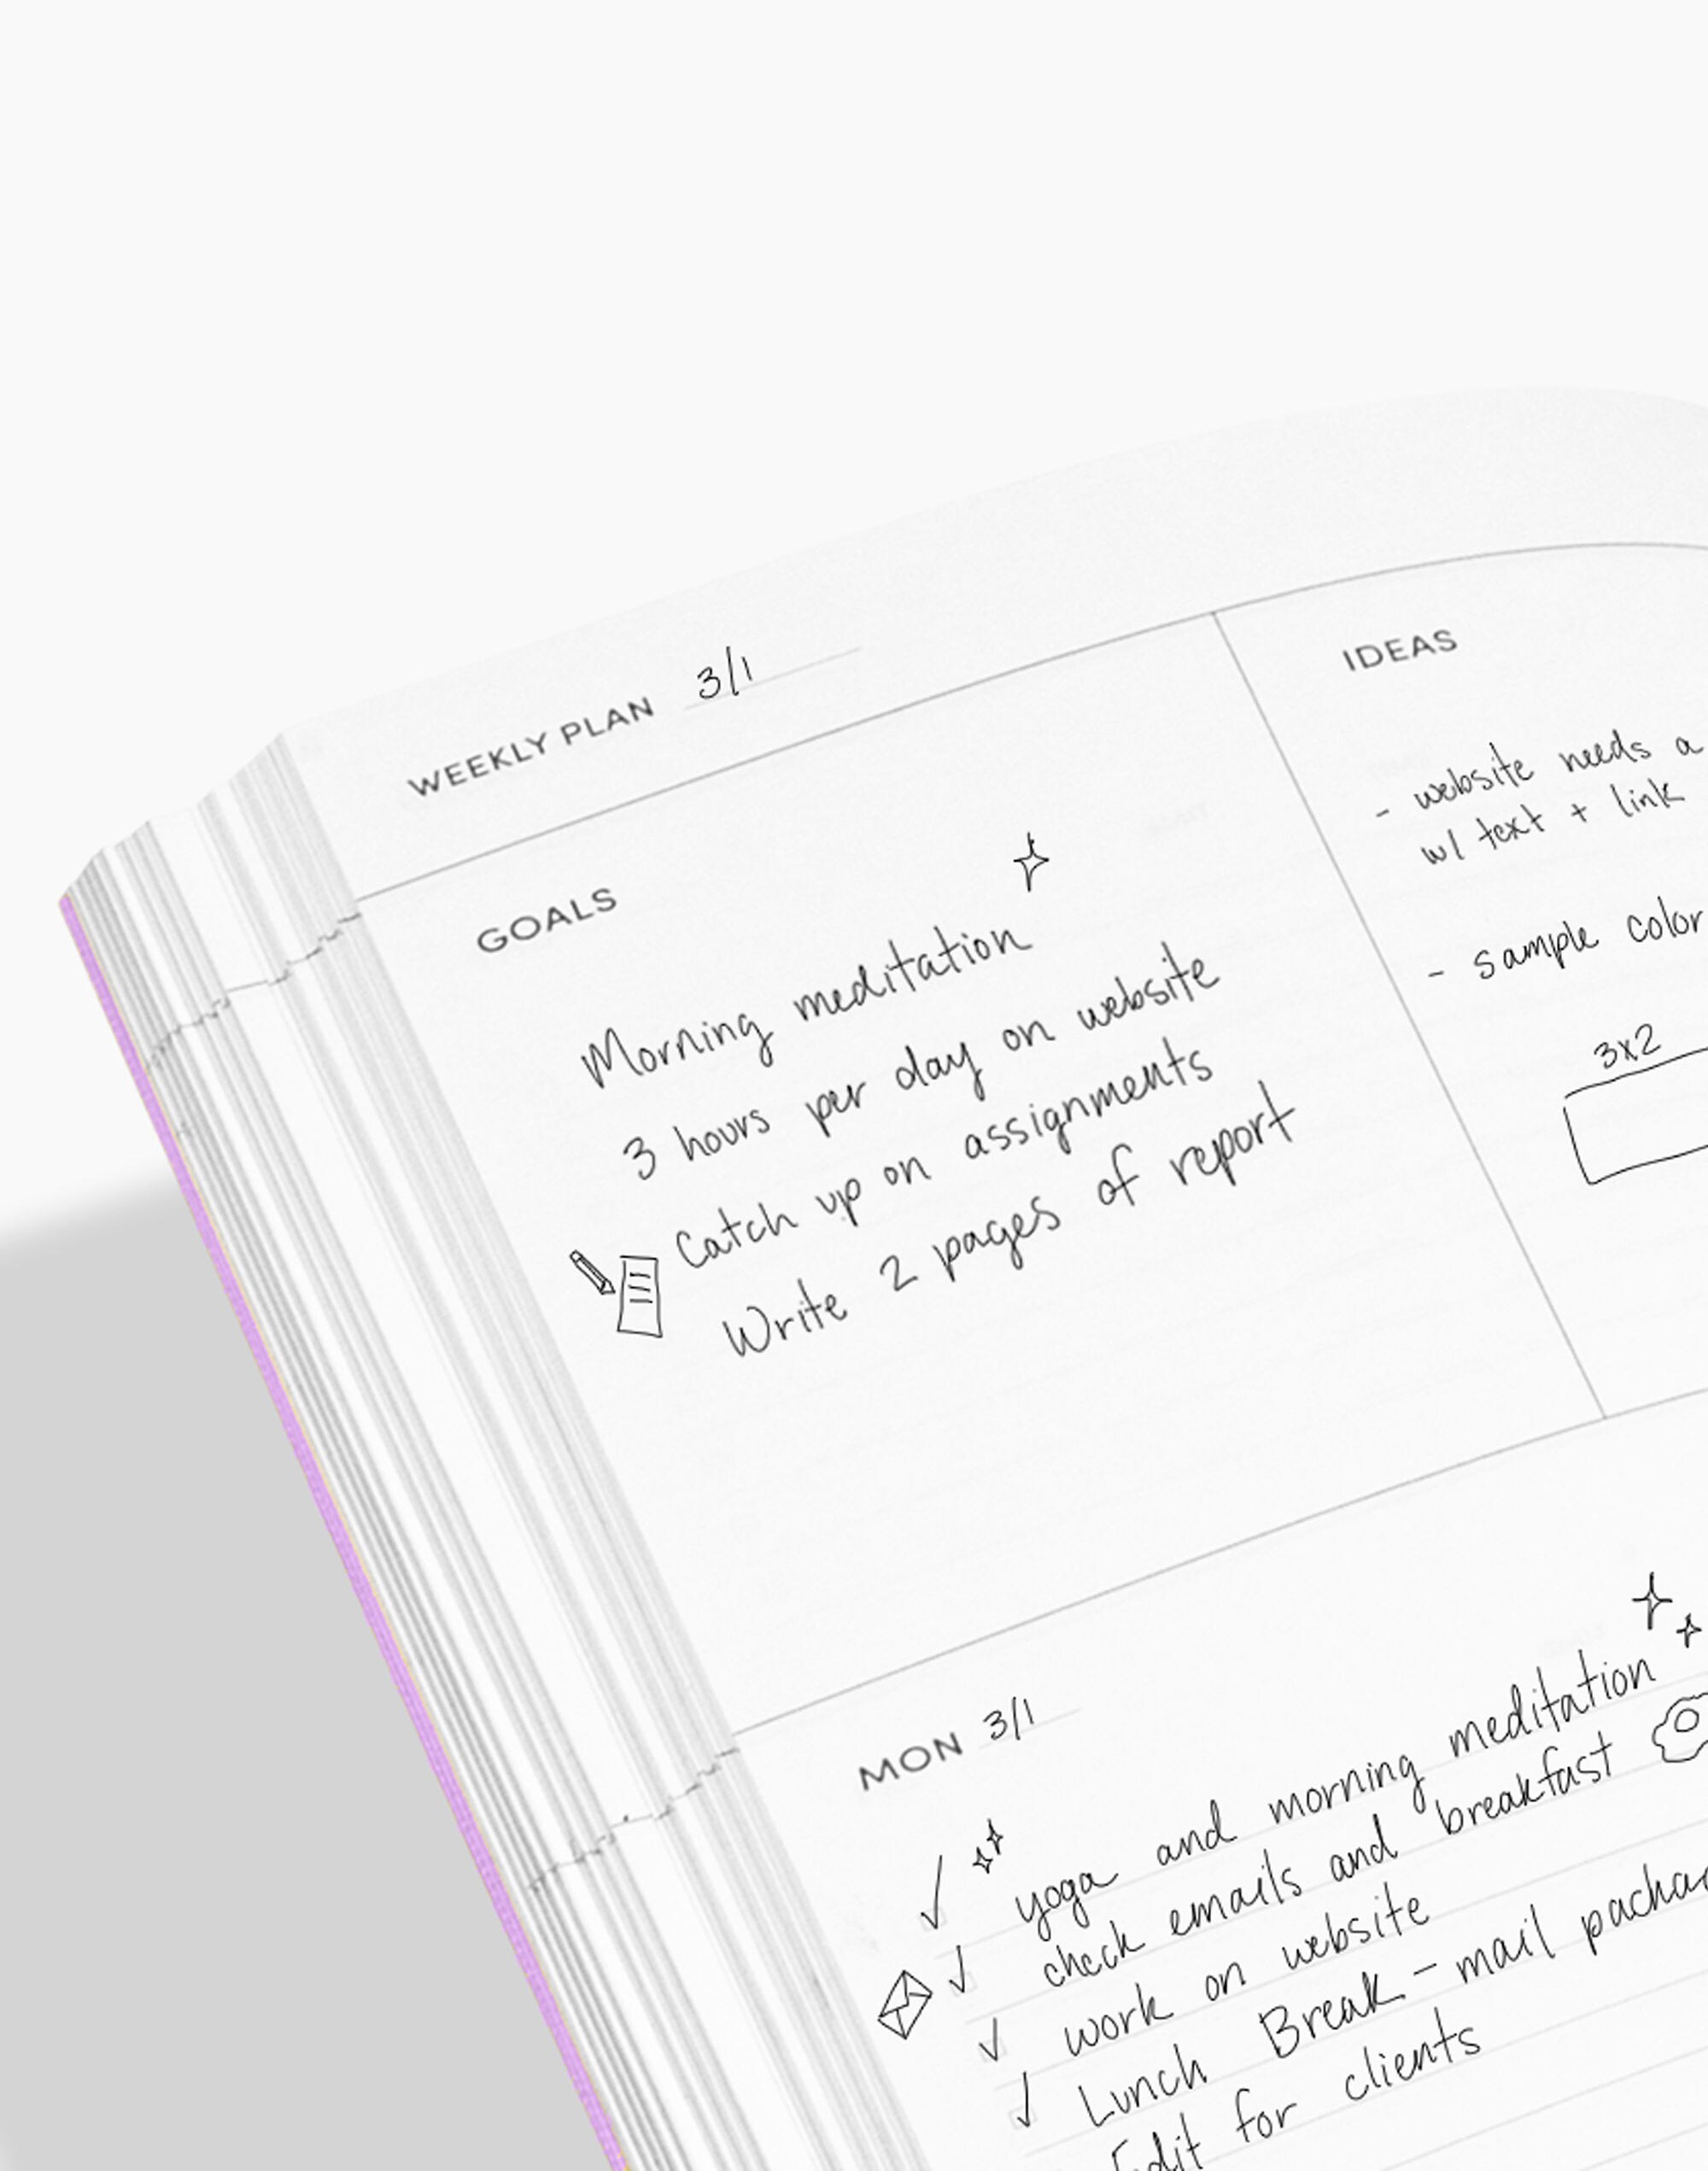 WEEKLY PLAN 3/1
GOALS
Morning meditation
3 hours per day on website
Catch up on assignments
Write 2 pages of report
IDEAS
- website needs a
w/ text + link
- sample color
3x2
MON 3/1
yoga and morning meditation
check emails and breakfast
work on website
Lunch Break - mail
Edit for clients